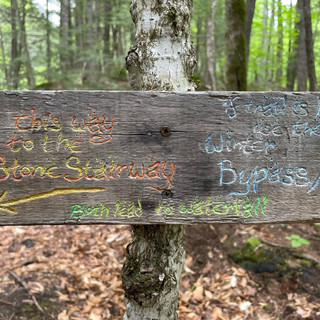 this way
to the
Stone Stairway
if trail is
use the
Winter
Bypass
Both lead to waterfall